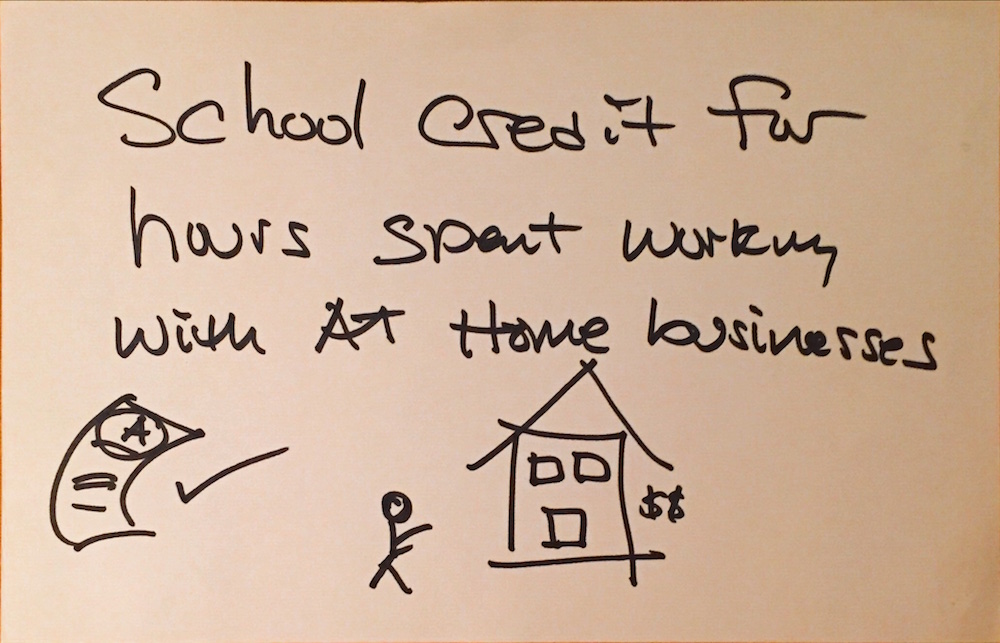 School credit for
hours spent working
with At Home businesses
A
$$